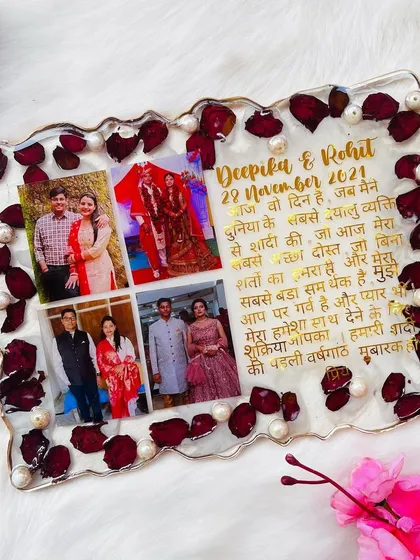 Deepika & Rohit
28 November 2021
आज वो दिन है, जब मैने
दुनिया के सबसे दयालु व्यक्ति
से शादी की, जो आज मेरा
सबसे अच्छा दोस्त, जो बिना
शर्तो का हमराही, और मेरा
सबसे बड़ा समर्थक है मुझे
आप पर गर्व है और प्यार भी
मेरा हमेशा साथ देने के लिए
शुक्रिया आपका, हमारी शादी
की पहली वर्षगांठ मुबारक हो
प्रिय